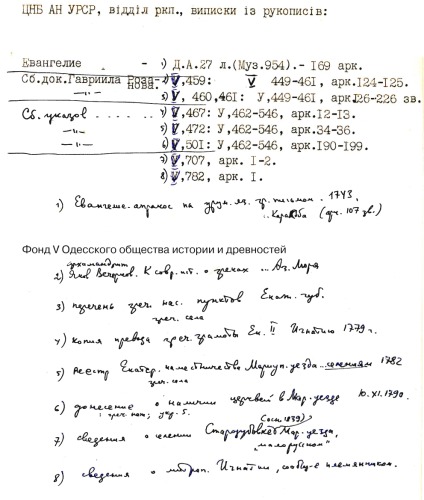 ЦНБ АН УРСР, відділ ркп., виписки із рукописів:
Евангелие - 1) Д.А.27 л.(Муз.954).- 169 арк.
Сб.док.Гавриила Роза- 2) V,459: V 449-461, арк.124-125.
нова. 3) V, 460,461: У,449-461, арк.126-226 зв.
Сб. указов ..... 4) V,467: У,462-546, арк.12-13.
—"— 5) V,472: У,462-546, арк.34-36.
—"— 6) V,501: У,462-546, арк.190-199.
7) V,707, арк. 1-2.
8) V,782, арк. 1.
1) Евангелие-апракос на урум. яз. гр. письмом. 1743.
(арк. 107 зв.)
Фонд V Одесского общества истории и древностей
архимандрит
2) о греках ... Аз. Моря
3) перечень греч. нас. пунктов Екат. губ.
греч. села
4) копия перевода греч. грамоты Ек. II Игнатию 1779 г.
5) Реестр Екатер. наместничества Мариуп. уезда селениям 1782
греч. села
6) донесение о наличии церквей в Мар. уезде 10.XI.1790.
7) сведения о селении Стародубовке Мар. уезда,
"малорусском"
8) сведения о митроп. Игнатии, племянником.